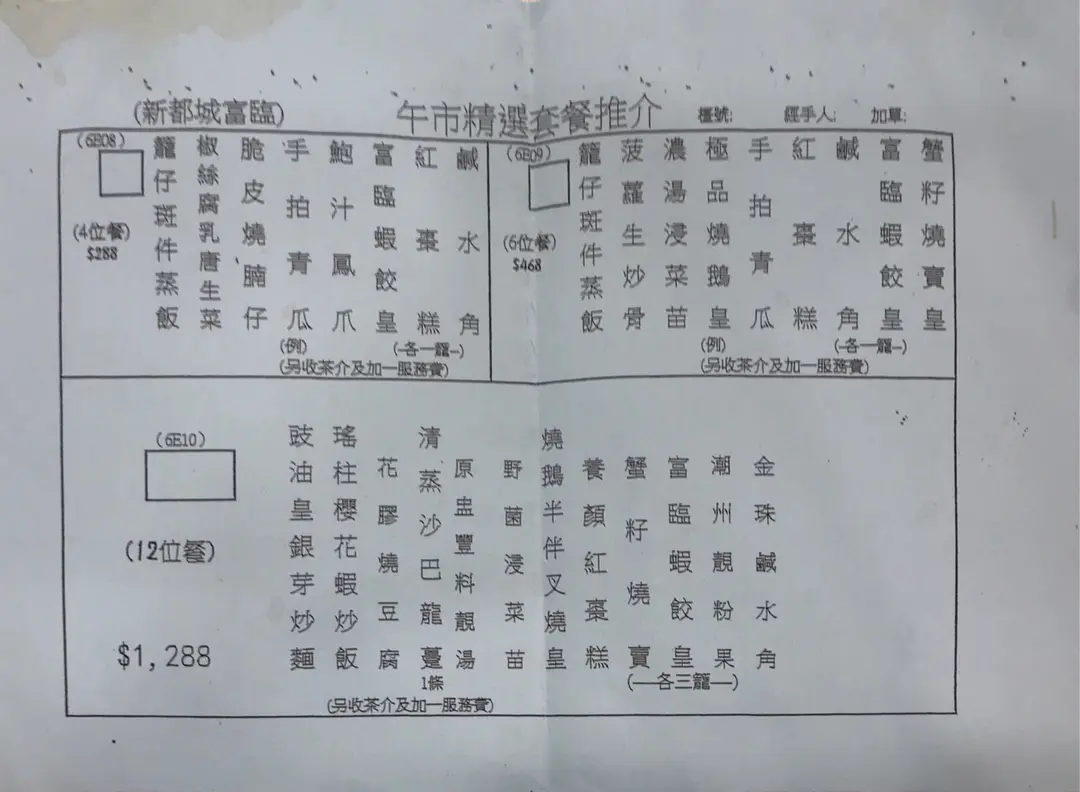 (新都城富臨)
午市精選套餐推介
檯號:
經手人:
加單:
(6E08)
(4位餐)
$288
鹹水角
紅棗糕
(-各一籠-)
富臨蝦餃皇
鮑汁鳳爪
手拍青瓜
(例)
脆皮燒腩仔
椒絲腐乳唐生菜
籠仔斑件蒸飯
(另收茶介及加一服務費)
(6E09)
(6位餐)
$468
蟹籽燒賣皇
富臨蝦餃皇
鹹水角
紅棗糕
(-各一籠-)
手拍青瓜
極品燒鵝皇
(例)
濃湯浸菜苗
菠蘿生炒骨
籠仔斑件蒸飯
(另收茶介及加一服務費)
(6E10)
(12位餐)
$1,288
金珠鹹水角
潮州靚粉果
富臨蝦餃皇
蟹籽燒賣
(—各三籠—)
養顏紅棗糕
燒鵝半伴叉燒皇
野菌浸菜苗
原盅豐料靚湯
清蒸沙巴龍躉
1條
花膠燒豆腐
瑤柱櫻花蝦炒飯
豉油皇銀芽炒麵
(另收茶介及加一服務費)